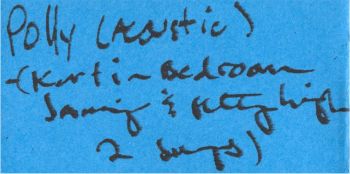 Polly (Acoustic)
-(Kurt in Bedroom
Jamming & getting high
2 songs)